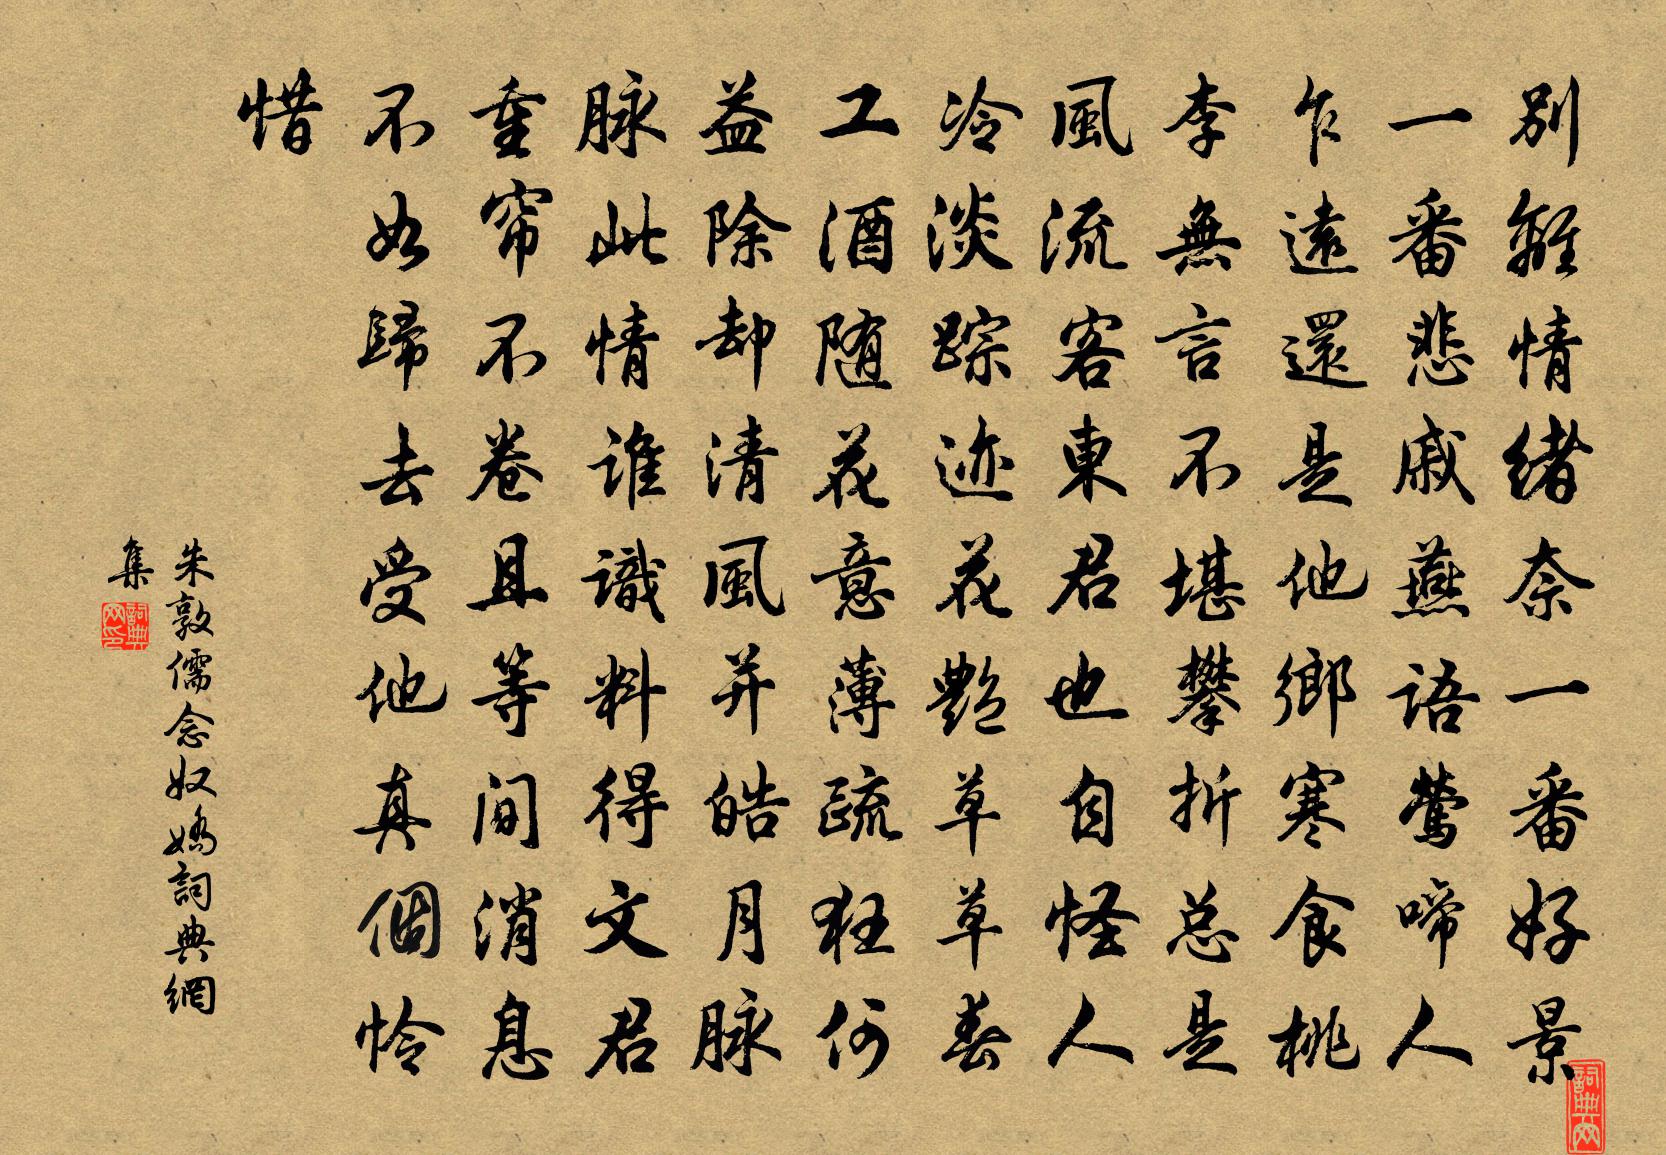 別離情緒奈一番好景
一番悲戚燕語鶯啼人
乍遠還是他鄉寒食桃
李無言不堪攀折总是
風流客東君也自怪人
冷淡踪迹花艷草草春
工酒随花意薄疏狂何
益除却清風并皓月脉
脉此情谁識料得文君
重帘不卷且等间消息
不如歸去受他真個怜
惜
朱敦儒念奴嬌詞典網
集
詞典网印
詞典网